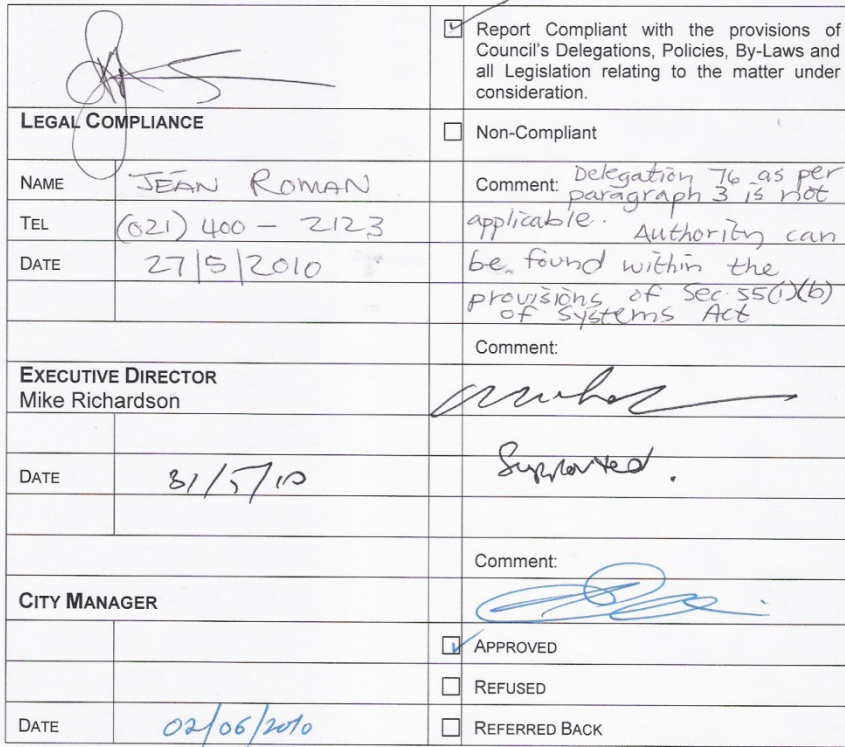 Report Compliant with the provisions of
Council's Delegations, Policies, By-Laws and
all Legislation relating to the matter under
consideration.
LEGAL COMPLIANCE
Non-Compliant
NAME JEAN ROMAN
TEL (021) 400 - 2123
DATE 27/5/2010
Comment: Delegation 76 as per
paragraph 3 is not
applicable. Authority can
be found within the
provisions of Sec. 55(1)(b)
of Systems Act
Comment:
EXECUTIVE DIRECTOR
Mike Richardson
DATE 31/5/10
Supported.
Comment:
CITY MANAGER
APPROVED
REFUSED
DATE 02/06/2010
REFERRED BACK